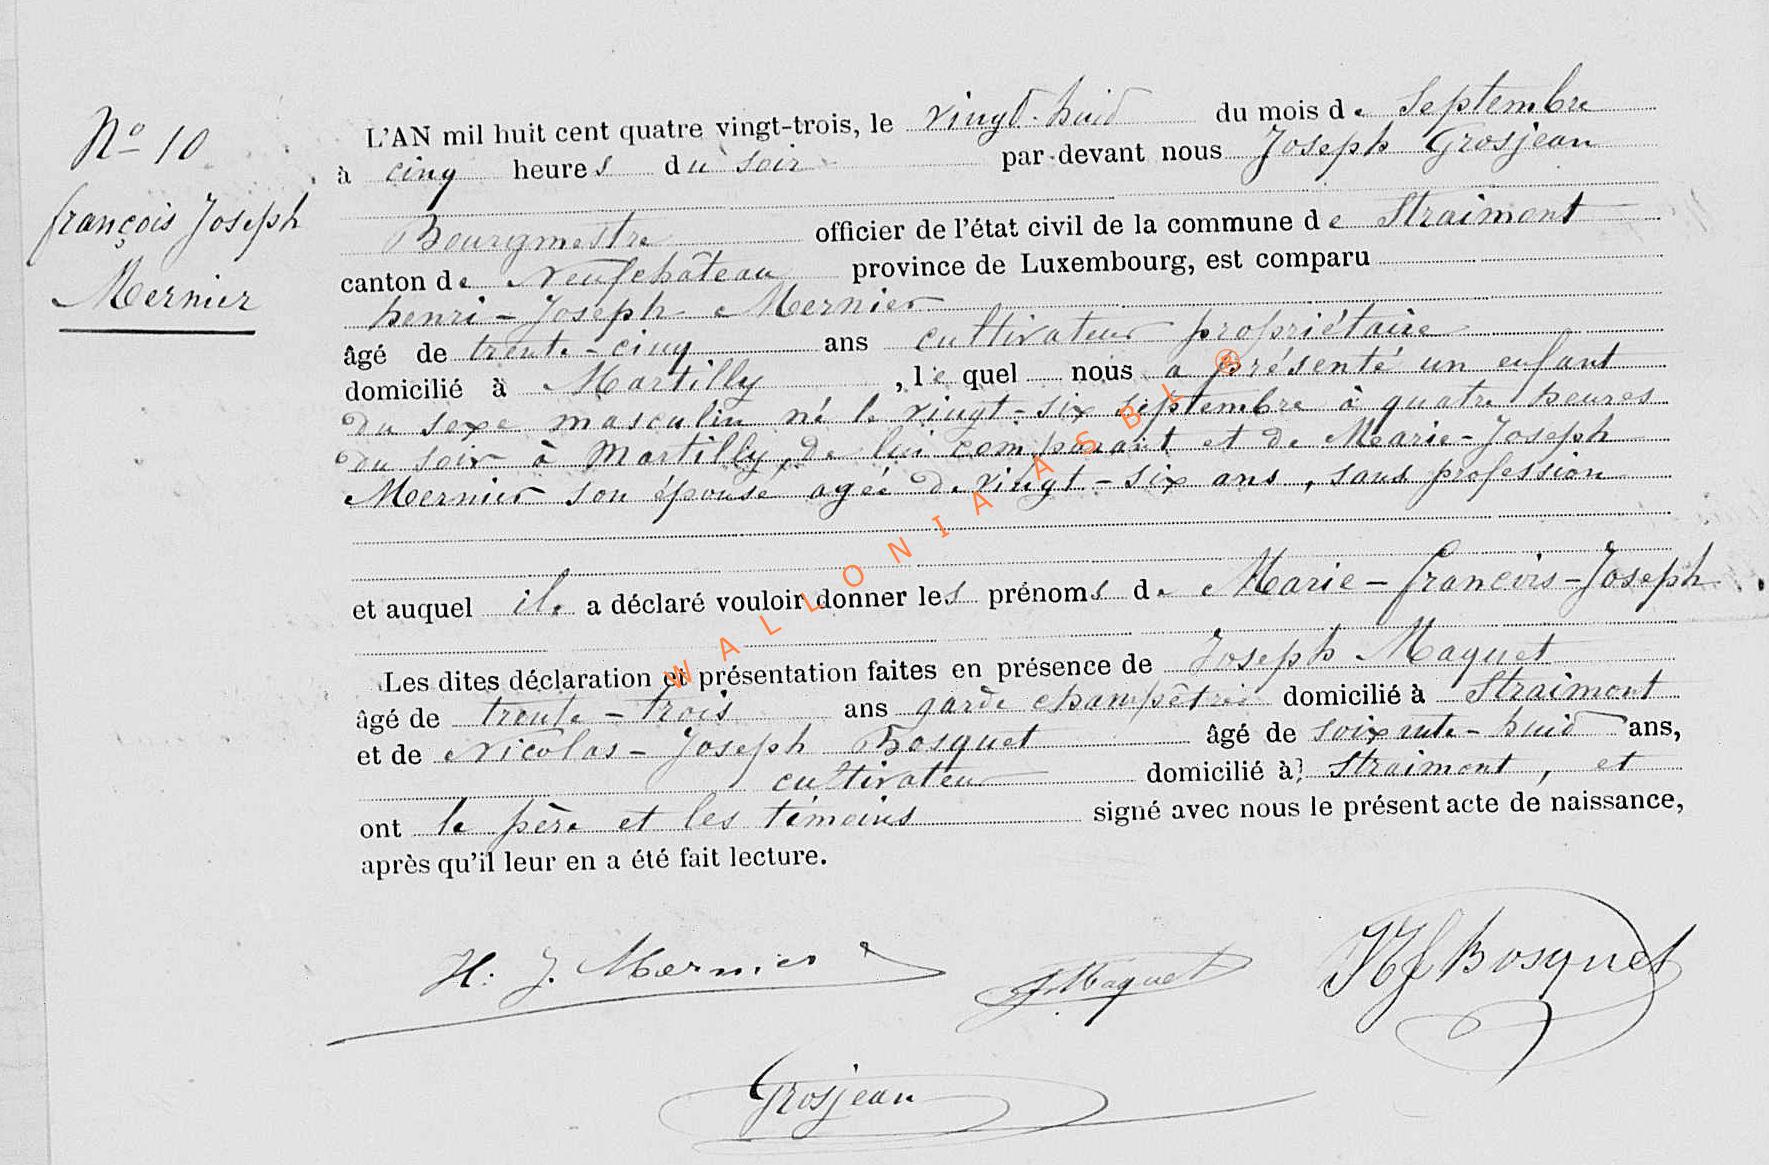 N° 10
françois Joseph
Mernier
L'AN mil huit cent quatre vingt-trois, le vingt-huit du mois de Septembre
à cinq heures du soir par-devant nous Joseph Grosjean
Bourgmestre officier de l'état civil de la commune de Straimont
canton de Neufchâteau province de Luxembourg, est comparu
henri-Joseph Mernier
âgé de trente-cinq ans cultivateur propriétaire
domicilié à Martilly, lequel nous a présenté un enfant
du sexe masculin né le vingt-six septembre à quatre heures
du soir à Martilly, de lui comparant et de Marie-Joseph
Mernier son épouse agée de vingt-six ans, sans profession
et auquel il a déclaré vouloir donner les prénoms de Marie-françois-Joseph.
Les dites déclaration et présentation faites en présence de Joseph Maquet
âgé de trente-trois ans garde champêtre domicilié à Straimont
et de Nicolas-Joseph Bosquet âgé de soixante-huit ans,
cultivateur domicilié à Straimont, et
ont le père et les témoins signé avec nous le présent acte de naissance,
après qu'il leur en a été fait lecture.
H. J. Mernier J. Maquet NJ Bosquet
Grosjean
WALLONIA ASBL ®